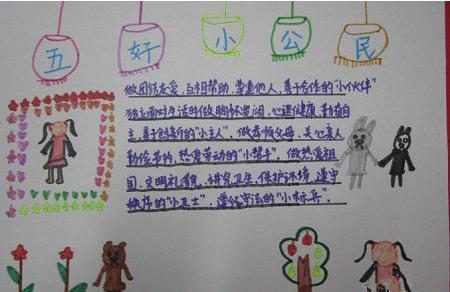 五好小公民
做团结友爱,互相帮助,尊重他人,善于合作的“小伙伴”
独立面对生活时做胸怀宽阔,心理健康,勤奋自
主,善于创新的“小主人”,做孝顺父母,关心亲人
勤俭节约,热爱劳动的“小帮手”,做热爱祖
国,文明礼貌,讲究卫生,保护环境,遵守
秩序的“小卫士”,遵纪守法的“小标兵”。